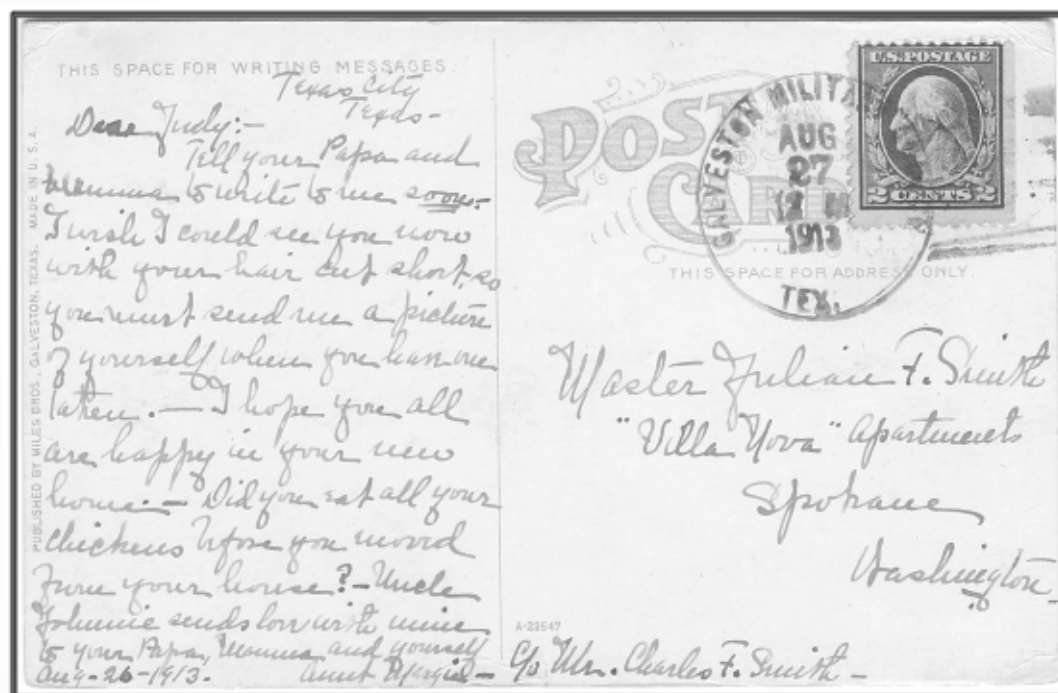 THIS SPACE FOR WRITING MESSAGES.
Texas City
Texas-
Dear Judy:-
Tell your Papa and
Mamma to write to me soon.-
I wish I could see you now
with your hair cut short, so
you must send me a picture
of yourself when you have one
taken. - I hope you all
are happy in your new
home. - Did you eat all your
chickens before you moved
from your house? - Uncle
Johnnie sends love with mine
to your Papa, Mamma and yourself
Aug-26-1913. Aunt
PUBLISHED BY MILES BROS., GALVESTON, TEXAS. MADE IN U.S.A.
POST
CARD
THIS SPACE FOR ADDRESS ONLY.
GALVESTON MILITA
AUG
27
12 M
1913
TEX.
U.S. POSTAGE
2 CENTS 2
Master Julian F. Smith
"Villa Nova" Apartments
Spokane
Washington-
A-23547
c/o Mr. Charles F. Smith-